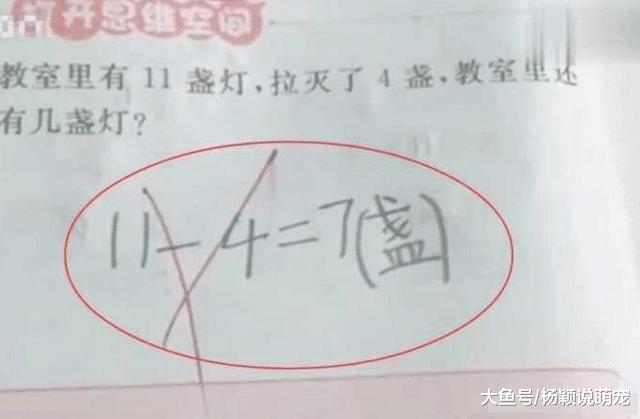 打开思维空间
教室里有 11 盏灯,拉灭了 4 盏,教室里还
有几盏灯?
11-4=7(盏)
大鱼号/杨颖说萌宠